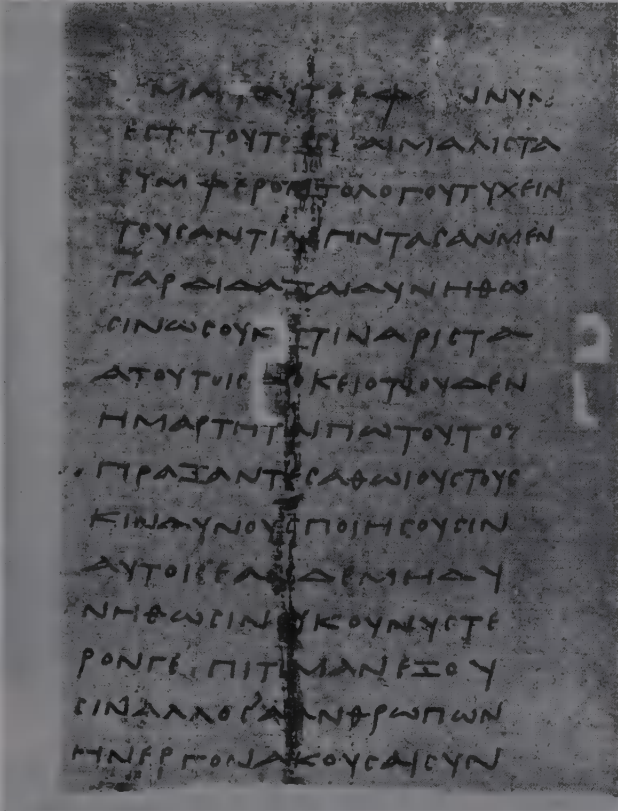 ΜΑΛΙϹΤΑ
ϹΥΜΦΕΡΟΝΤΟΛΟΓΟΥΤΥΧΕΙΝ
ΤΟΥϹΑΝΤΙ ΑΝΜΕΝ
ΓΑΡΔΙΔΑΞΑΙΔΥΝΗΘΩ
ϹΙΝΩϹΟΥΚΕϹΤΙΝΑΡΙϹΤΑ
ΑΤΟΥΤΟΙϹΔΟΚΕΙΟΤΟΥΔΕΝ
ΗΜΑΡΤΗΤΑΙΠΩΤΟΥΤΟ
ΠΡΑΞΑΝΤΕϹΑΘΩΙΟΥϹΤΟΥϹ
ΚΙΝΔΥΝΟΥϹΠΟΙΗϹΟΥϹΙΝ
ΑΥΤΟΙϹΕΑΝΔΕΜΗΔΥ
ΝΗΘΩϹΙΝΟΥΚΟΥΝΥϹΤΕ
ΡΟΝΓΕΕΠΙΤΙΜΑΝΕΞΟΥ
ϹΙΝΑΛΛΟϹΑΑΝΘΡΩΠΩΝ
ΗΝΕΡΓΟΝΑΚΟΥϹΑΙϹΥΝ